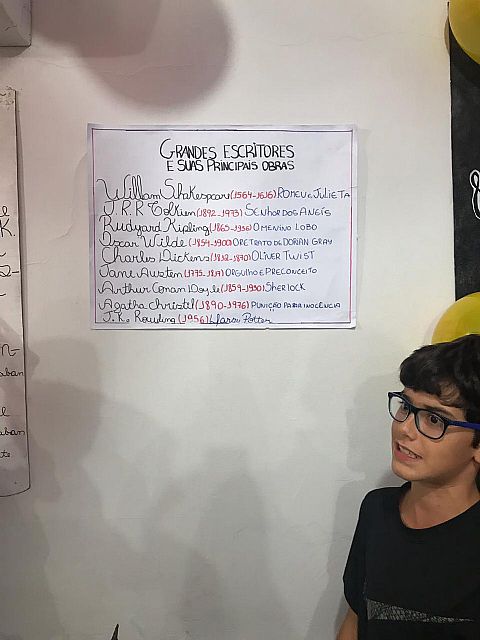 GRANDES ESCRITORES
E SUAS PRINCIPAIS OBRAS
William Shakespeare (1564-1616) ROMEU E JULIETA
J.R.R Tolkien (1892-1973) SENHOR DOS ANEÍS
Rudyard Kipling (1865-1936) O MENINO LOBO
Oscar Wilde (1854-1900) O RETRATO DE DORIAN GRAY
Charles Dickens (1812-1870) OLIVER TWIST
Jane Austen (1775-1817) ORGULHO E PRECONCEITO
Arthur Conan Doyle (1859-1930) SHERLOCK
Agatha Christil (1890-1976) PUNIÇÃO PARA INOCÊNCIA
J.K. Rowling (1956) Harri Potter